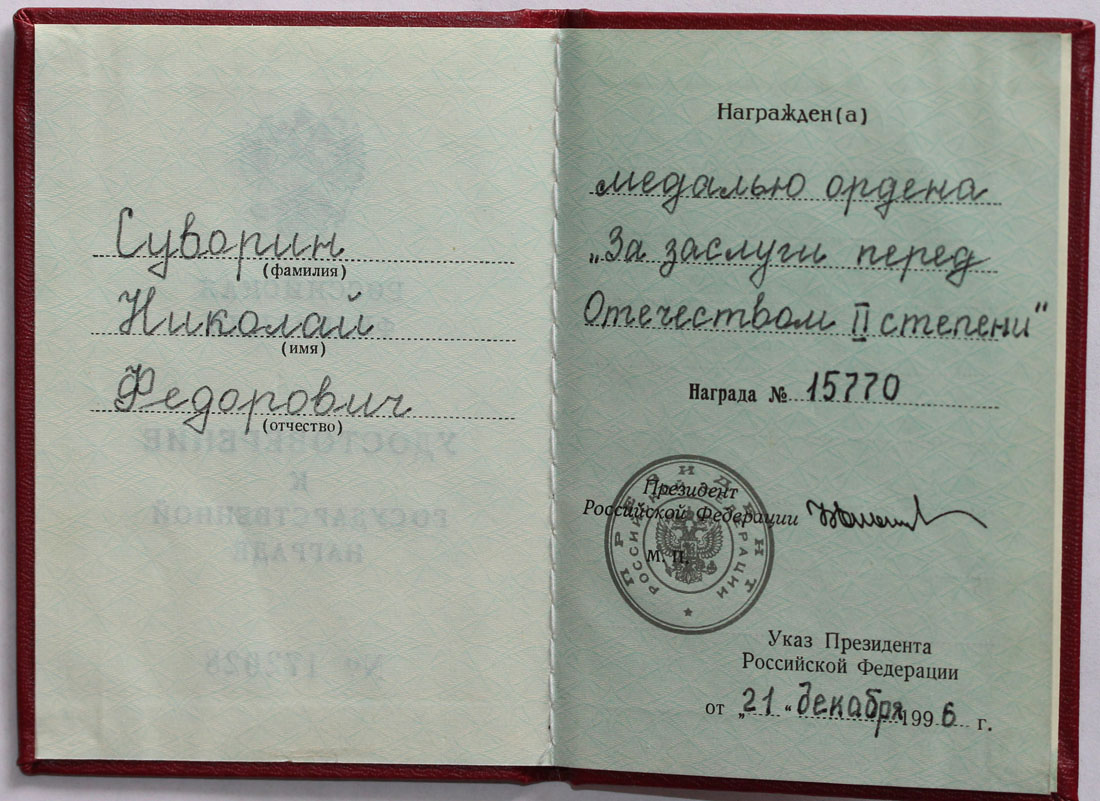 Суворин
(фамилия)
Николай
(имя)
Федорович
(отчество)
РОССИЙСКАЯ
УДОСТОВЕРЕНИЕ
К
ГОСУДАРСТВЕННОЙ
НАГРАДЕ
Награжден(а)
медалью ордена
„За заслуги перед
Отечеством II степени“
Награда № 15770
ПРЕЗИДЕНТ
РОССИЙСКОЙ ФЕДЕРАЦИИ
Президент
Российской Федерации
М. П.
Указ Президента
Российской Федерации
от „21“ декабря 1996 г.